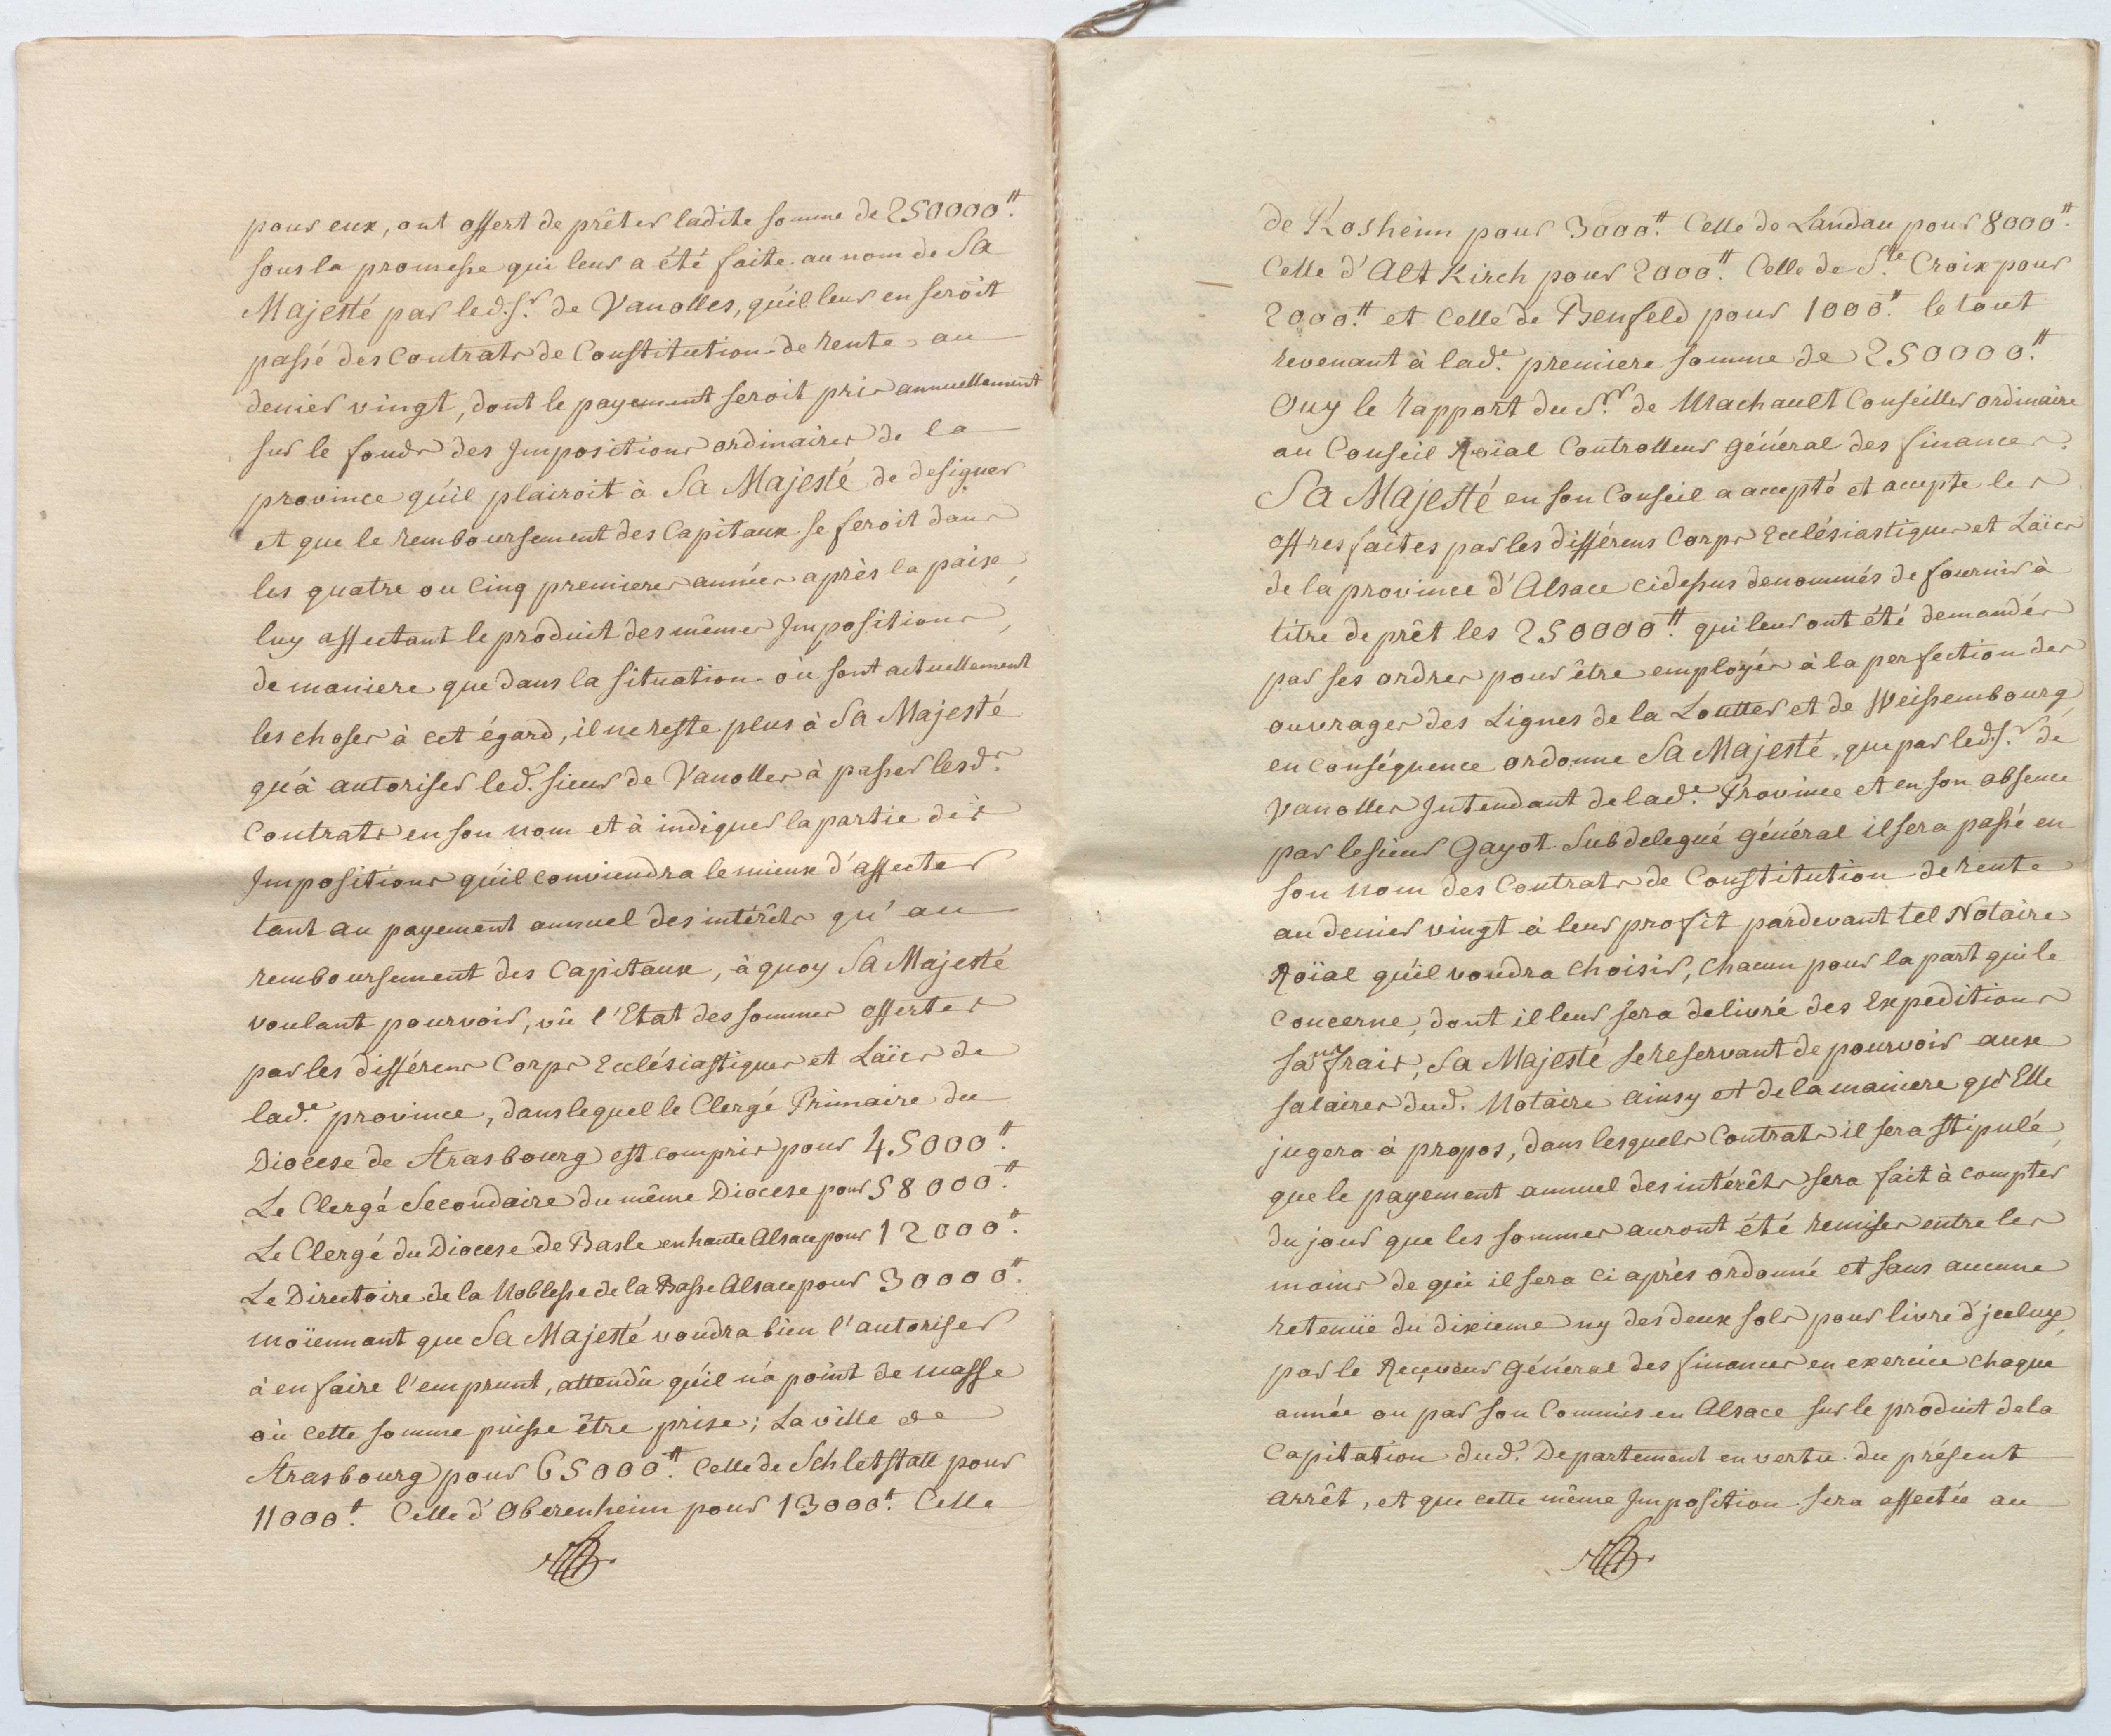 pour eux, ont offert de prêter ladite somme de 250000.tt
sous la promesse qui leur a été faite au nom de Sa
Majesté par led. Sr. de Vanolles, qu'il leur en seroit
passé des Contrats de Constitution de rente au
denier vingt, dont le payement seroit pris annuellement
sur le fonds des Impositions ordinaires de la
province qu'il plairoit à Sa Majesté de designer
et que le remboursement des Capitaux se feroit dans
les quatre ou Cinq premieres années après la paix,
luy affectant le produit des mêmes Impositions,
de maniere que dans la situation où sont actuellement
les choses à cet égard, il ne reste plus à Sa Majesté
qu'à autoriser led. sieur de Vanolles à passer lesds.
Contrats en son nom et à indiquer la partie des
Impositions qu'il conviendra le mieux d'affecter
tant au payement annuel des intérêts qu'au
remboursement des Capitaux, à quoy Sa Majesté
voulant pourvoir, vû l'Etat des sommes offertes
par les différens Corps Ecclésiastiques et Laïcs de
lade. province, dans lequel le Clergé Primaire du
Diocese de Strasbourg est compris pour 45000.tt
Le Clergé Secondaire du même Diocese pour 58000.tt
Le Clergé du Diocese de Basle en haute Alsace pour 12000.tt
Le Directoire de la Noblesse de la Basse Alsace pour 30000.tt
moïennant que Sa Majesté voudra bien l'autoriser
à en faire l'emprunt, attendû qu'il n'a point de masse
où cette somme puisse être prise; La ville de
Strasbourg pour 65000.tt Celle de Schletstatt pour
11000.tt Celle d'Oberenheim pour 13000.tt Celle
de Rosheim pour 3000.tt Celle de Landau pour 8000.tt
Celle d'Alt Kirch pour 2000.tt Celle de Ste. Croix pour
2000.tt et Celle de Benfeld pour 1000.tt le tout
revenant à lade. premiere somme de 250000.tt
Ouy le rapport du Sr. de Machault Conseiller ordinaire
au Conseil Roïal Controlleur général des finances.
Sa Majesté en son Conseil a accepté et accepte les
offres faites par les différens Corps Ecclésiastiques et Laïcs
de la province d'Alsace cidessus denommés de fournir à
titre de prêt les 250000.tt qui leur ont été demandés
par ses ordres pour être employés à la perfection des
ouvrages des Lignes de la Loutter et de Weissembourg,
en conséquence ordonne Sa Majesté, que par led. Sr. de
Vanolles Intendant de lade. Province et en son absence
par le sieur Gayot Subdelegué général il sera passé en
son nom des Contrats de Constitution de rente
au denier vingt à leur profit pardevant tel Notaire
Roïal qu'il voudra choisir, chacun pour la part qui le
Concerne, dont il leur sera delivré des Expeditions
sans frais, Sa Majesté se reservant de pourvoir aux
salaires dud. Notaire ainsy et de la maniere qu'Elle
jugera à propos, dans lesquels Contrats il sera stipulé,
que le payement annuel des intérêts sera fait à compter
du jour que les sommes auront été remises entre les
mains de qui il sera ci après ordonné et sans aucune
retenüe du dixieme ny des deux sols pour livre d'jceluy,
par le Receveur général des finances en exercice chaque
année ou par son Commis en Alsace sur le produit de la
Capitation dud. Departement en vertu du présent
arrêt, et que cette même Imposition sera affectée au